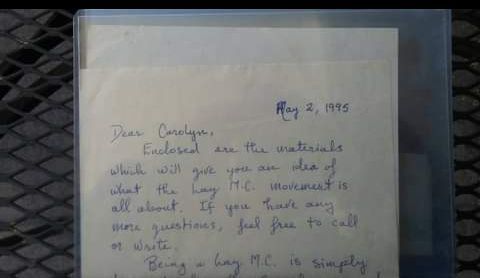 May 2, 1995
Dear Carolyn,
Enclosed are the materials
which will give you an idea of
what the Lay M.C. movement is
all about. If you have any
more questions, feel free to call
or write.
Being a Lay M.C. is simply